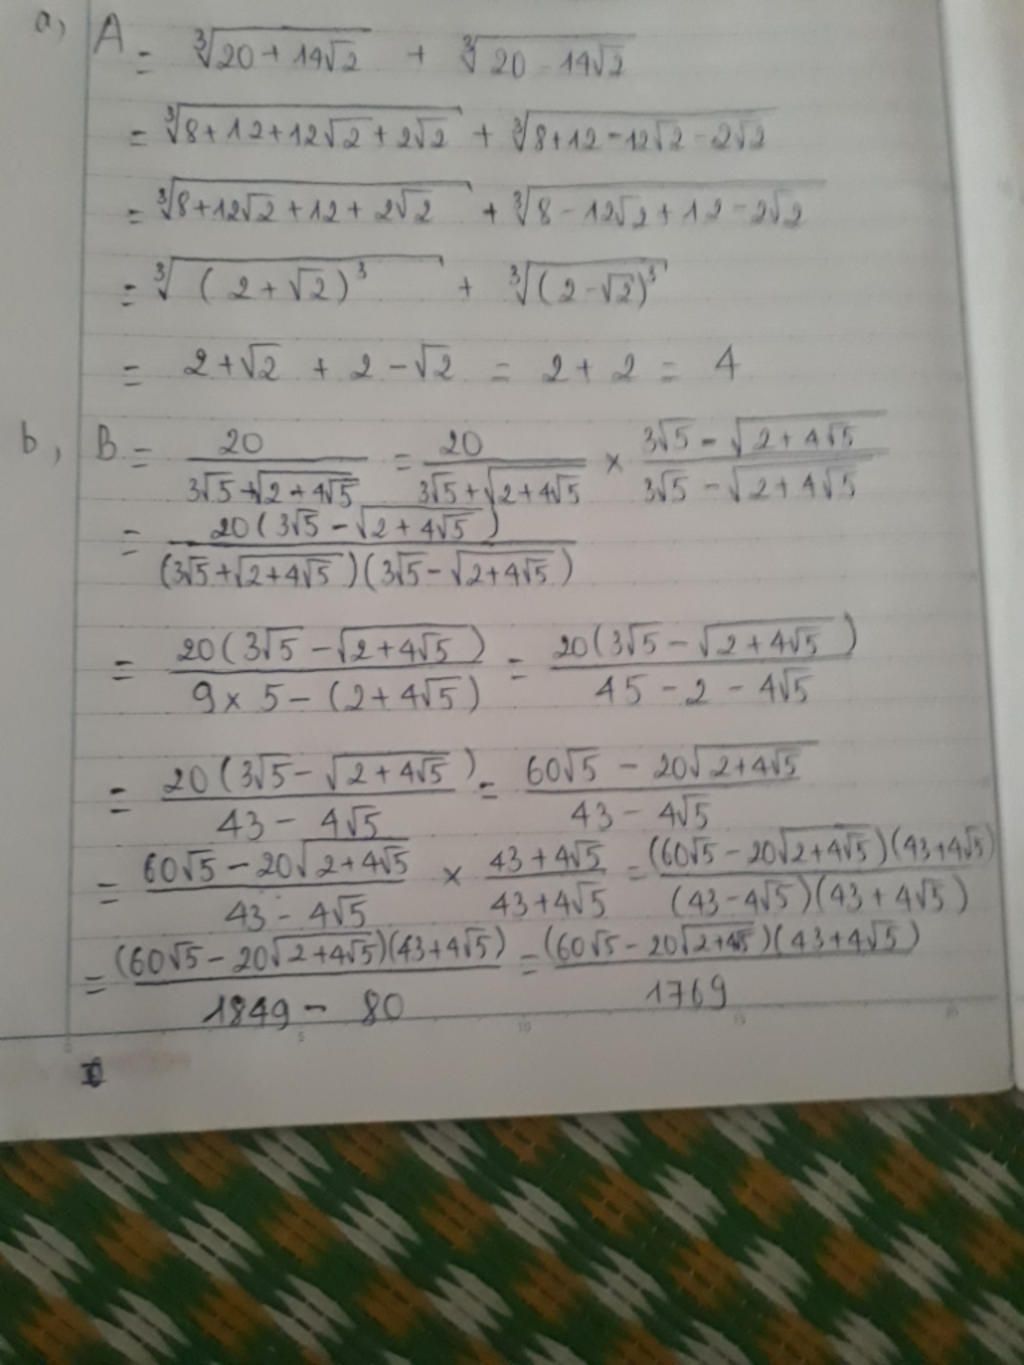 a, A = ∛(20 + 14√2) + ∛(20 - 14√2)
= ∛(8 + 12 + 12√2 + 2√2) + ∛(8 + 12 - 12√2 - 2√2)
= ∛(8 + 12√2 + 12 + 2√2) + ∛(8 - 12√2 + 12 - 2√2)
= ∛((2 + √2)³) + ∛((2 - √2)³)
= 2 + √2 + 2 - √2 = 2 + 2 = 4
b, B = 20/(3√5 + √(2 + 4√5)) = 20/(3√5 + √(2 + 4√5)) × (3√5 - √(2 + 4√5))/(3√5 - √(2 + 4√5))
= 20(3√5 - √(2 + 4√5))/((3√5 + √(2 + 4√5))(3√5 - √(2 + 4√5)))
= 20(3√5 - √(2 + 4√5))/(9 × 5 - (2 + 4√5)) = 20(3√5 - √(2 + 4√5))/(45 - 2 - 4√5)
= 20(3√5 - √(2 + 4√5))/(43 - 4√5) = (60√5 - 20√(2 + 4√5))/(43 - 4√5)
= (60√5 - 20√(2 + 4√5))/(43 - 4√5) × (43 + 4√5)/(43 + 4√5) = (60√5 - 20√(2 + 4√5))(43 + 4√5)/((43 - 4√5)(43 + 4√5))
= (60√5 - 20√(2 + 4√5))(43 + 4√5)/(1849 - 80) = (60√5 - 20√(2 + 4√5))(43 + 4√5)/1769
0 5 10 15 20